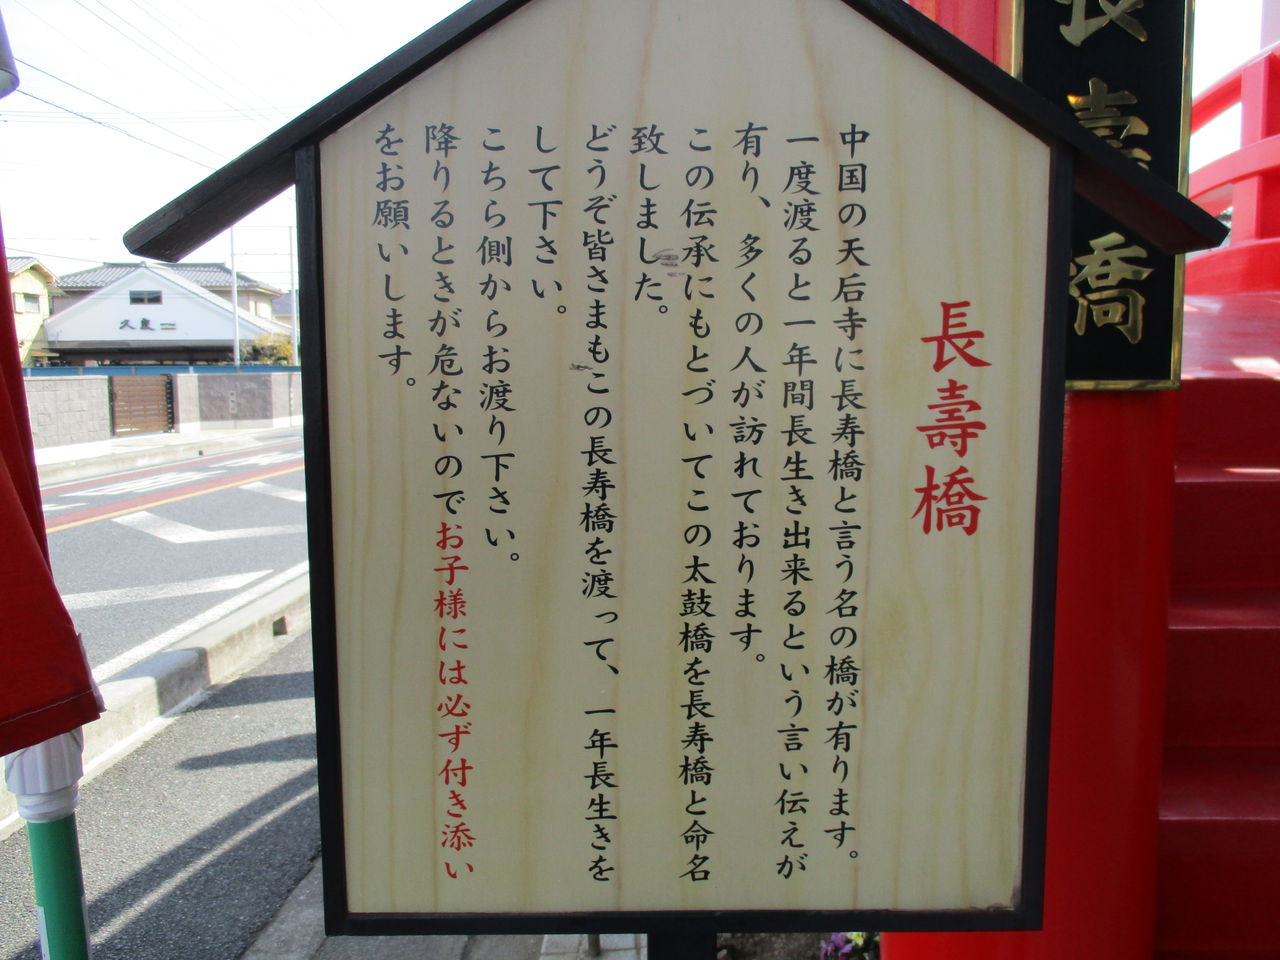 長壽橋
中国の天后寺に長寿橋と言う名の橋が有ります。
一度渡ると一年間長生き出来るという言い伝えが
有り、多くの人が訪れております。
この伝承にもとづいてこの太鼓橋を長寿橋と命名
致しました。
どうぞ皆さまもこの長寿橋を渡って、一年長生きを
して下さい。
こちら側からお渡り下さい。
降りるときが危ないのでお子様には必ず付き添い
をお願いします。
長壽橋
久良一